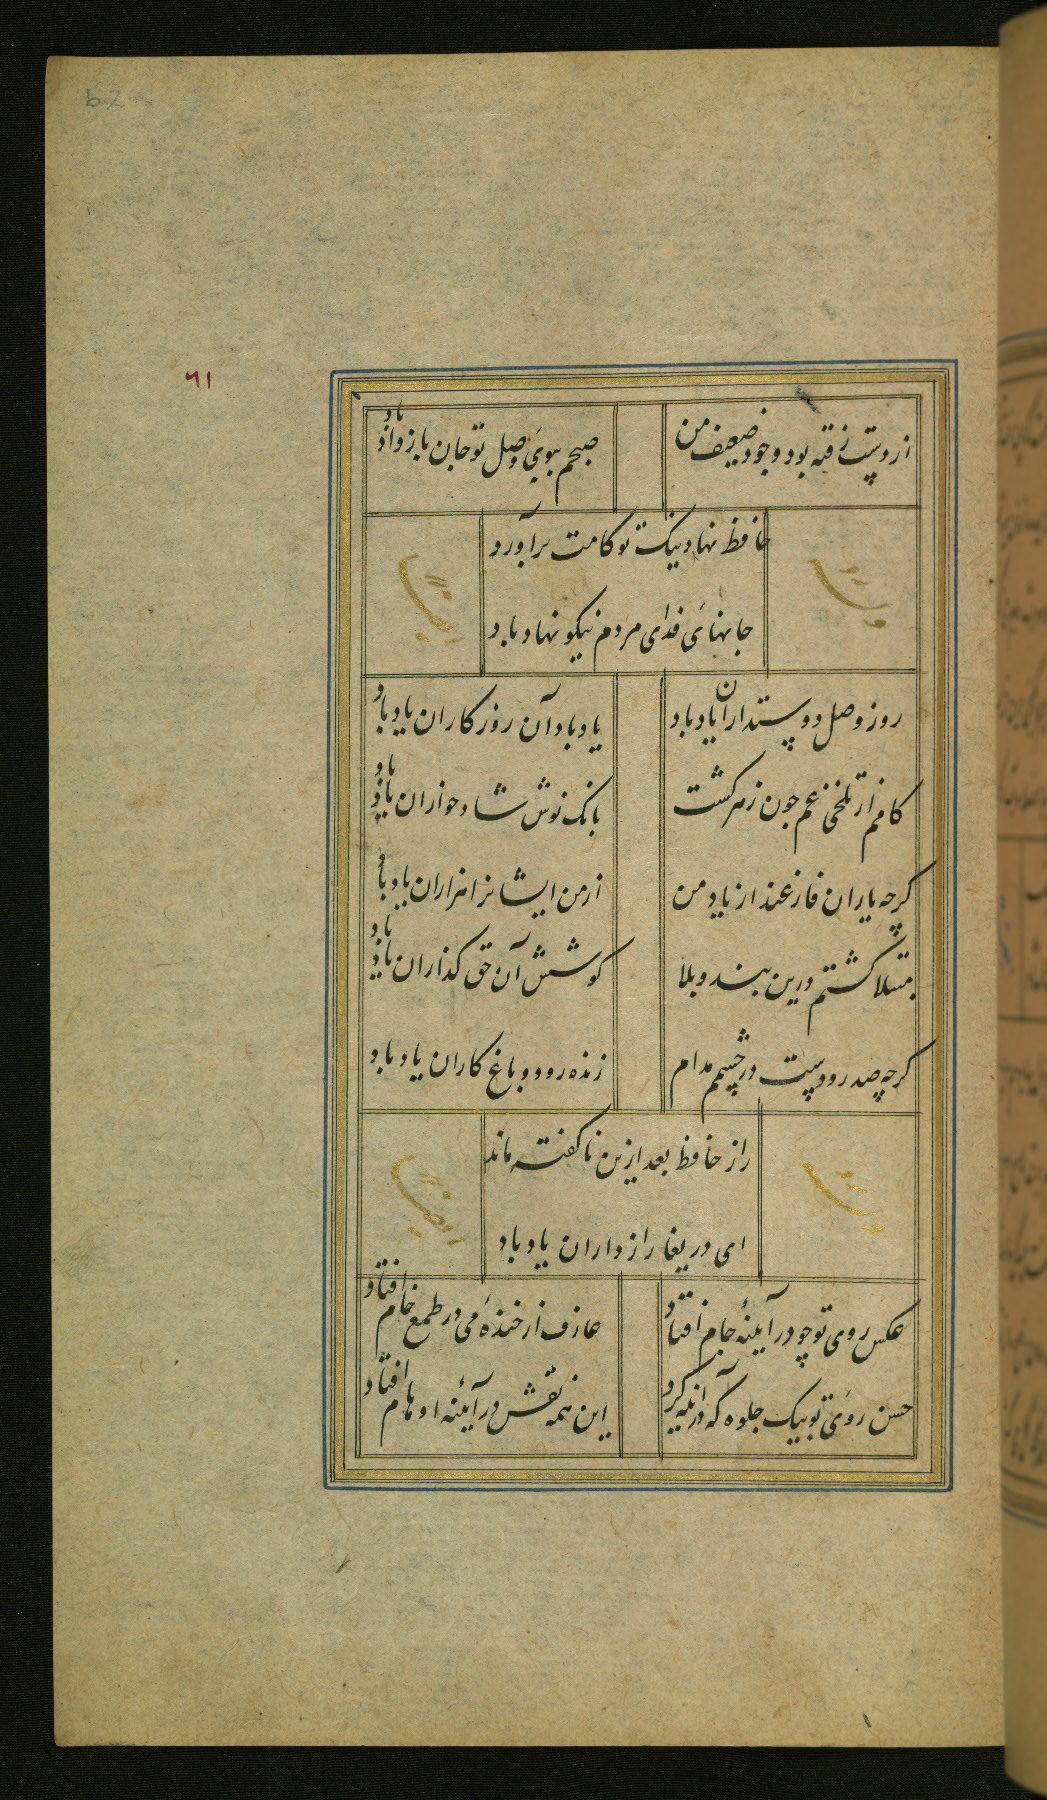 62
٦١
از دست رفته بود وجود ضعیف من
صبحم ببوی وصل تو جان باز داد باد
حافظ نهاد نیک تو کامت برآورد
جانهای فدای مردم نیکو نهاد باد
روز وصل دوستداران یاد باد
یاد باد آن روزکاران یاد باد
کامم از تلخی غم چون زهر کشت
بانک نوش شادخواران یاد باد
کرچه یاران فارغند از یاد من
از من ایشانرا هزاران یاد باد
مبتلا کشتم درین بند و بلا
کوشش آن حق کذاران یاد باد
کرچه صد رودست در چشمم مدام
زنده رود و باغ کاران یاد باد
راز حافظ بعد ازین ناکفته ماند
ای دریغا رازداران یاد باد
عکس روی تو چو در آینهٔ جام افتاد
عارف از خندهٔ می در طمع خام افتاد
حسن روی تو بیک جلوه که در آینه کرد
این همه نقش در آینه اوهام افتاد